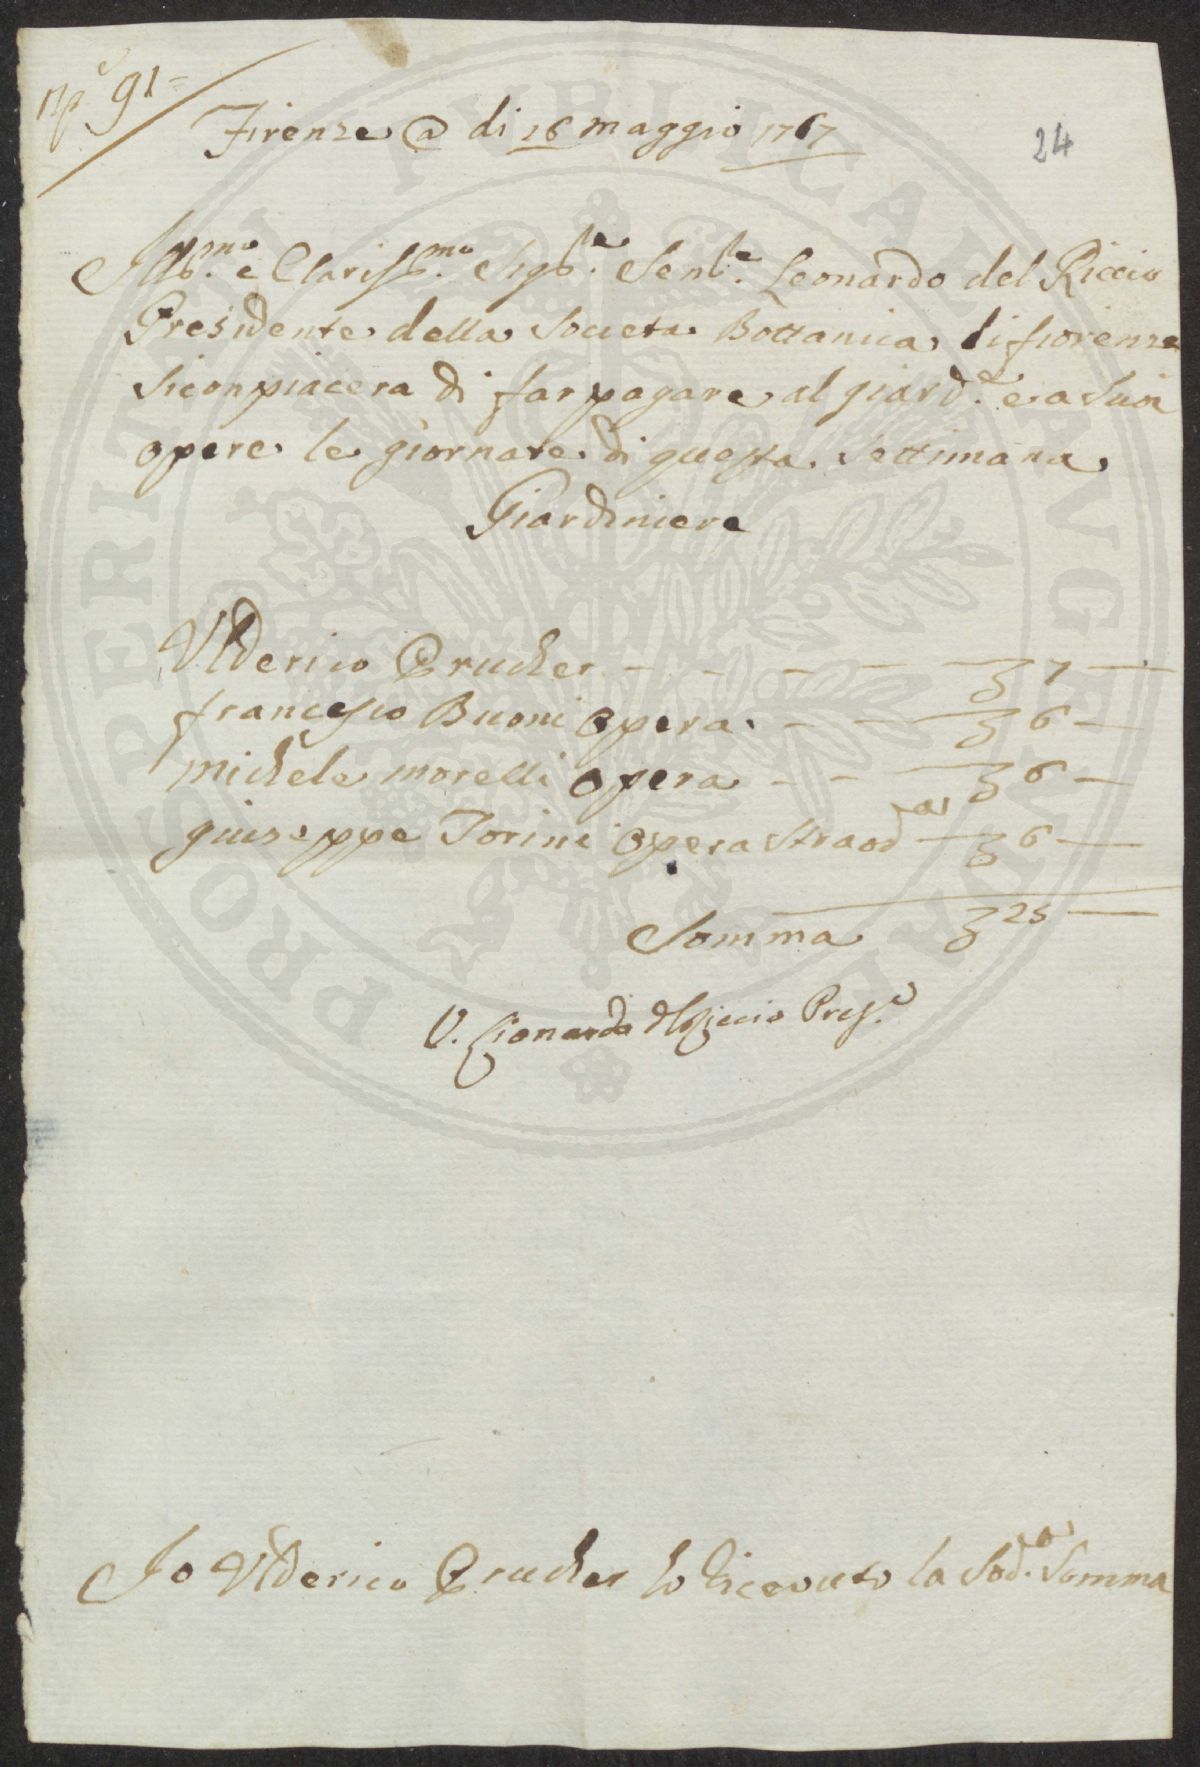 np.º 91=
Firenze @ di 16 maggio 1767
24
Illb.mo e Clarissb.mo Sigb.re Senb.re Leonardo del Riccio
Presidente della Societa Bottanica di fiorenza
si conpiacera di far pagare al giard.e e a suoi
opere le giornate di questa settimana
Giardiniere
Ulderico Prucker - - - - 7 —
francescio Buoni opera - - 6 —
michele morelli opera - - 6 —
giuseppe Torini opera straod.ra 6 —
Somma 25 —
V. Lionardo del Riccio Pres.e
Io Ulderico Prucker ho ricevuto la Sod.a Somma
PROSPERITATI PVBLICAE AVGENDAE